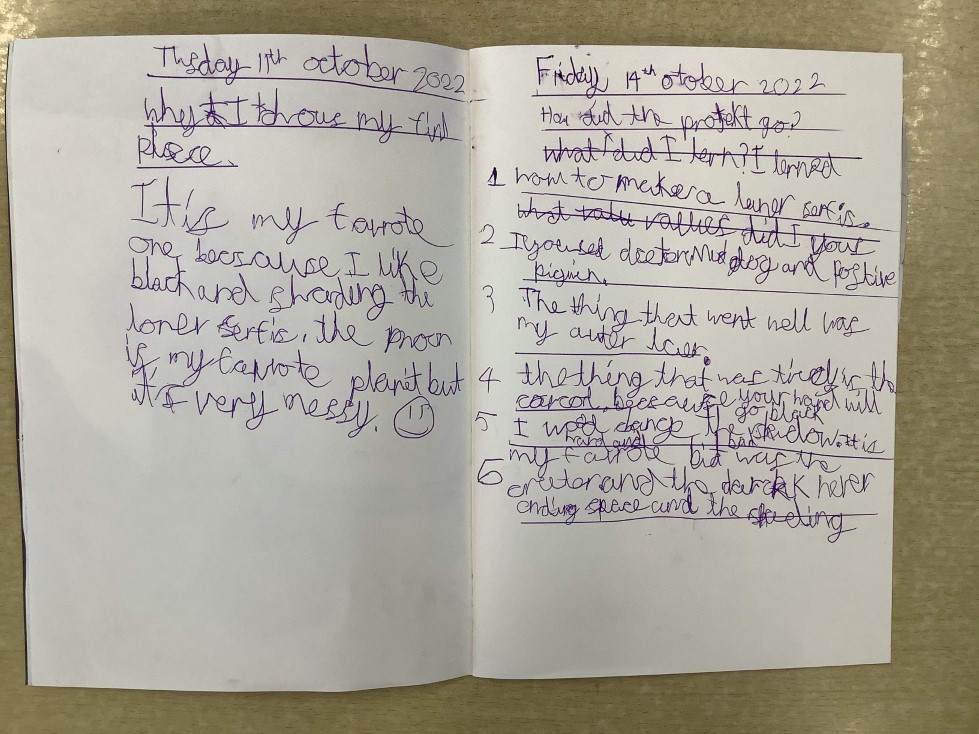 Thsday 11th october 2022
Why I chouse my finl
pleece.
It is my favrote
one becsause I like
black and shrading the
loner serfis. the moon
is my favrote planit but
it's very messy.
Friday 14th otober 2022
How did the projekt go?
what did I lern? I lerned
1 how to make a loner serfis.
what valu values did I your
2 I youesd doctormind dog and positive
pigien.
3 The thing that went well was
my outer laier.
4 the thing that was tircy is the
carcol. because your hand will
go black
5 I wold change the shadow. It is
hard and
my favrote bid was the
6 crater and the dark never
ending space and the sheeding